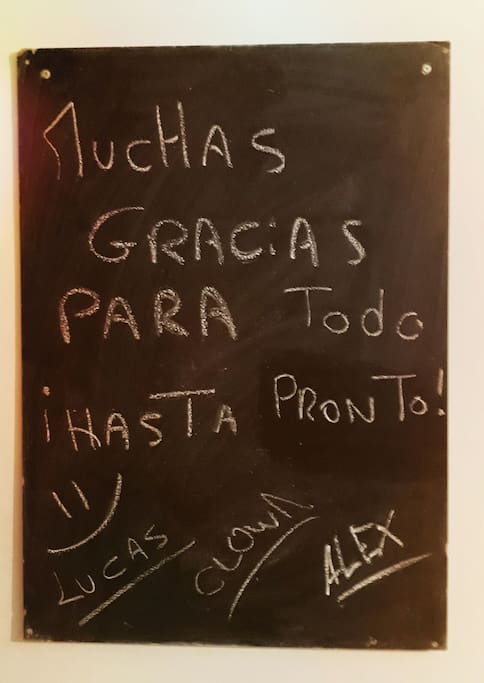 MUCHAS
GRACiAS
PARA Todo
¡HASTA PRONTO!
LUCAS
ALEX